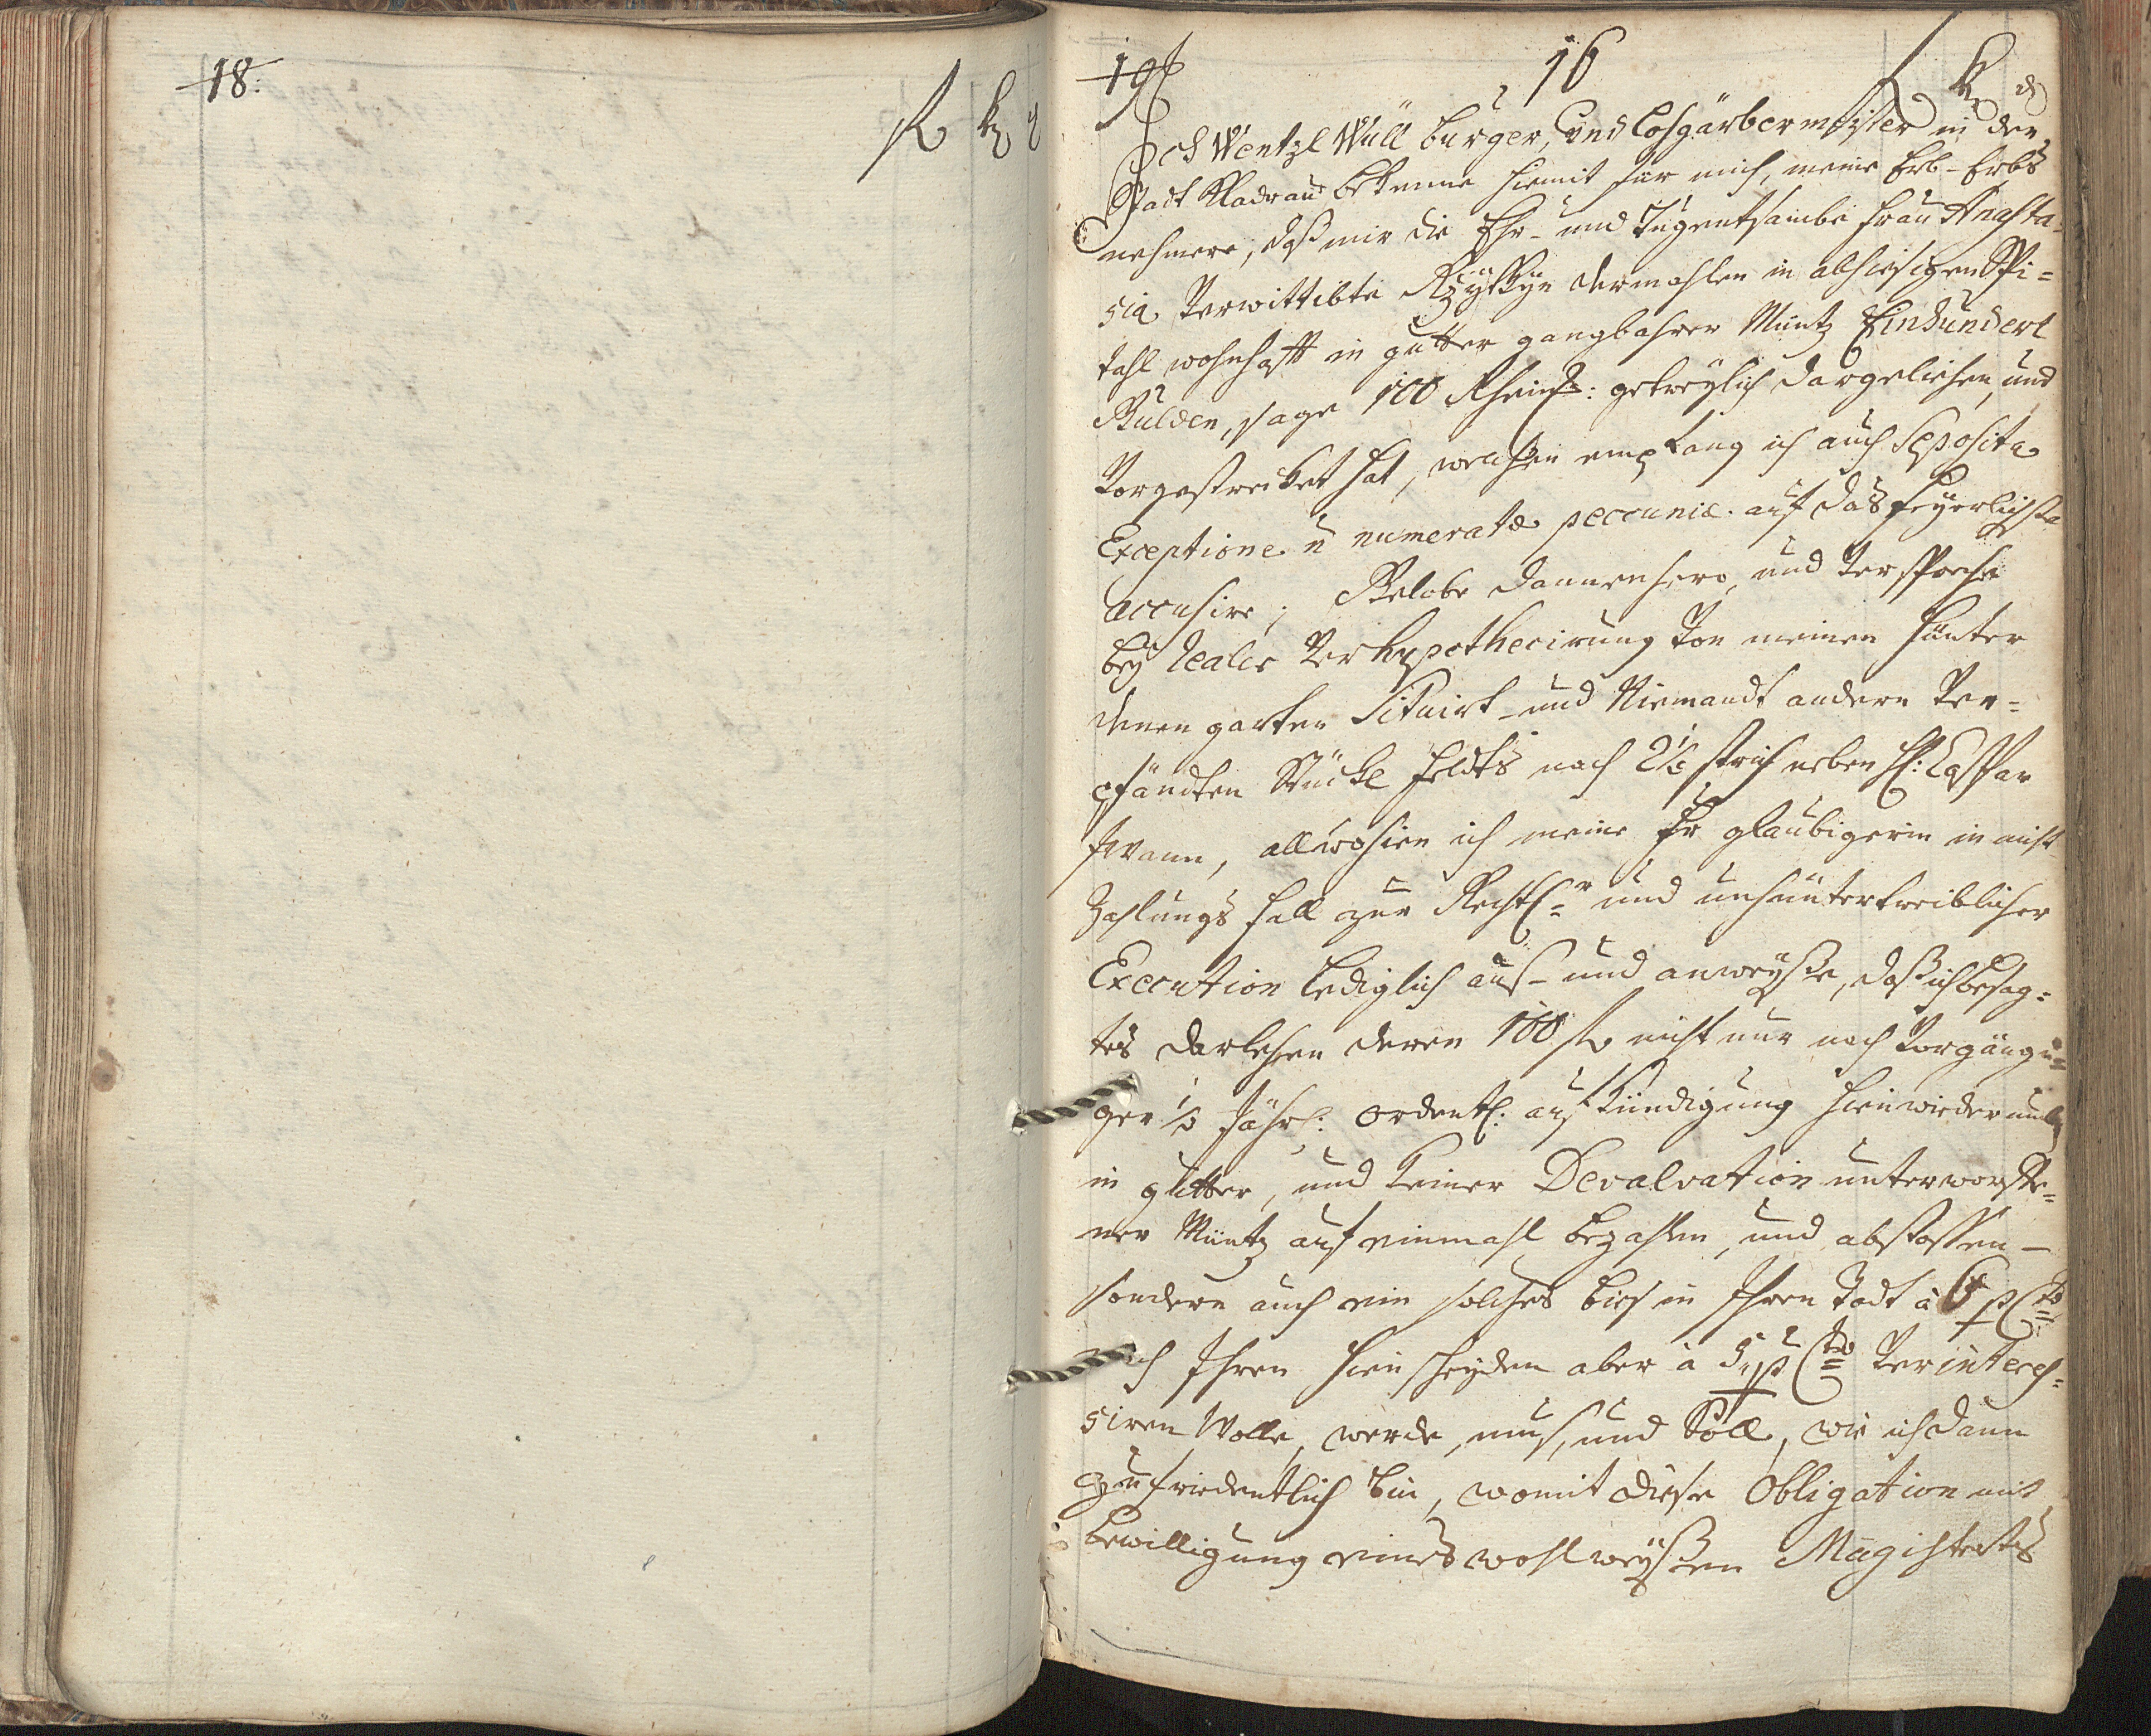 18:
fl kr d
19
16
fl kr d
Ich Wentzl Wüll burger, und Lohgärbermeister in der
Stadt Kladrau bekenne hiemit für mich, meine Erb- Erbs
nehmere, daß mir die Ehr- und Tugentsambe Frau Anasta-
sia Verwittibte dermahlen in alhiesigen Spi=
tahl wohnhafft in gutter gangbahrer Müntz Einhundert
Gulden, sage 100 Rheins: getreylich dargeliehen, und
Vorgestrecket hat, welchen empfang ich auch Seposita
Exceptione ñ numeratæ peccuniæ auf das feyerlichste
accusire; Gelobe dannenhero, und Verspreche
bey Realer Verhypothecirung Von meinen hünter
denen garten Situirt- und Niemandt andern Ver=
pfändten Stückl Feldts nach 2½ strich neben H: Caspar
Iwann, allwohien ich meine Fr glaubigerin in nicht
Zahlungs fall zur Rechtl=r und unhüntertreiblicher
Execution lediglich auß- und anweyße, daß ich besag=
tes darlehen deren 100 fl nicht nur nach Vorgängi=
ger ½ Jähr: ordentl: aufkündigung hienwiederumb
in gutter, und keiner Devalvation unterworffe=
ner Müntz auf einmahl bezahlen, und abstossen-
sondern auch ein solches biß in Ihren Todt à 6 p Cto
nach Ihren hienscheyden aber à 5 p Cto Verinteres=
siren Wolle, werde, muß, und Solle, wie ich dann
zufriedentlich bin, womit diese Obligation mit
bewilligung eines wohlweyßen Magistrats